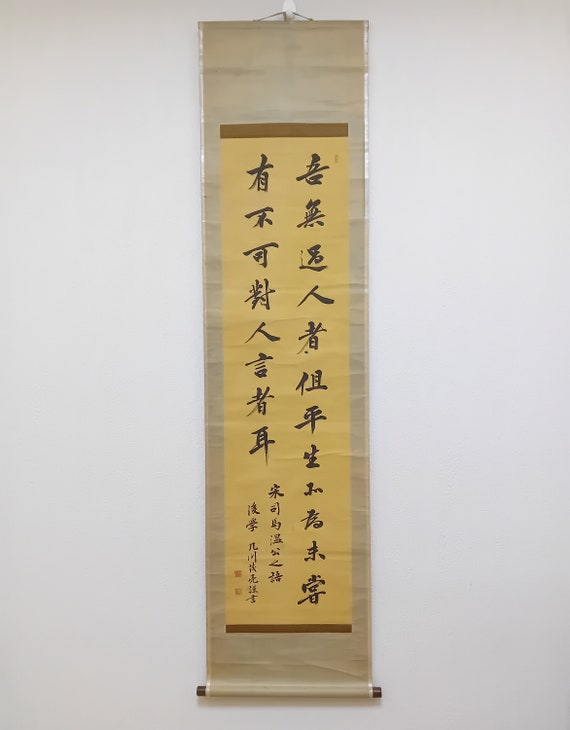 吾無過人者但平生所為未嘗
有不可對人言者耳
宋司馬温公之語
後學 謹書